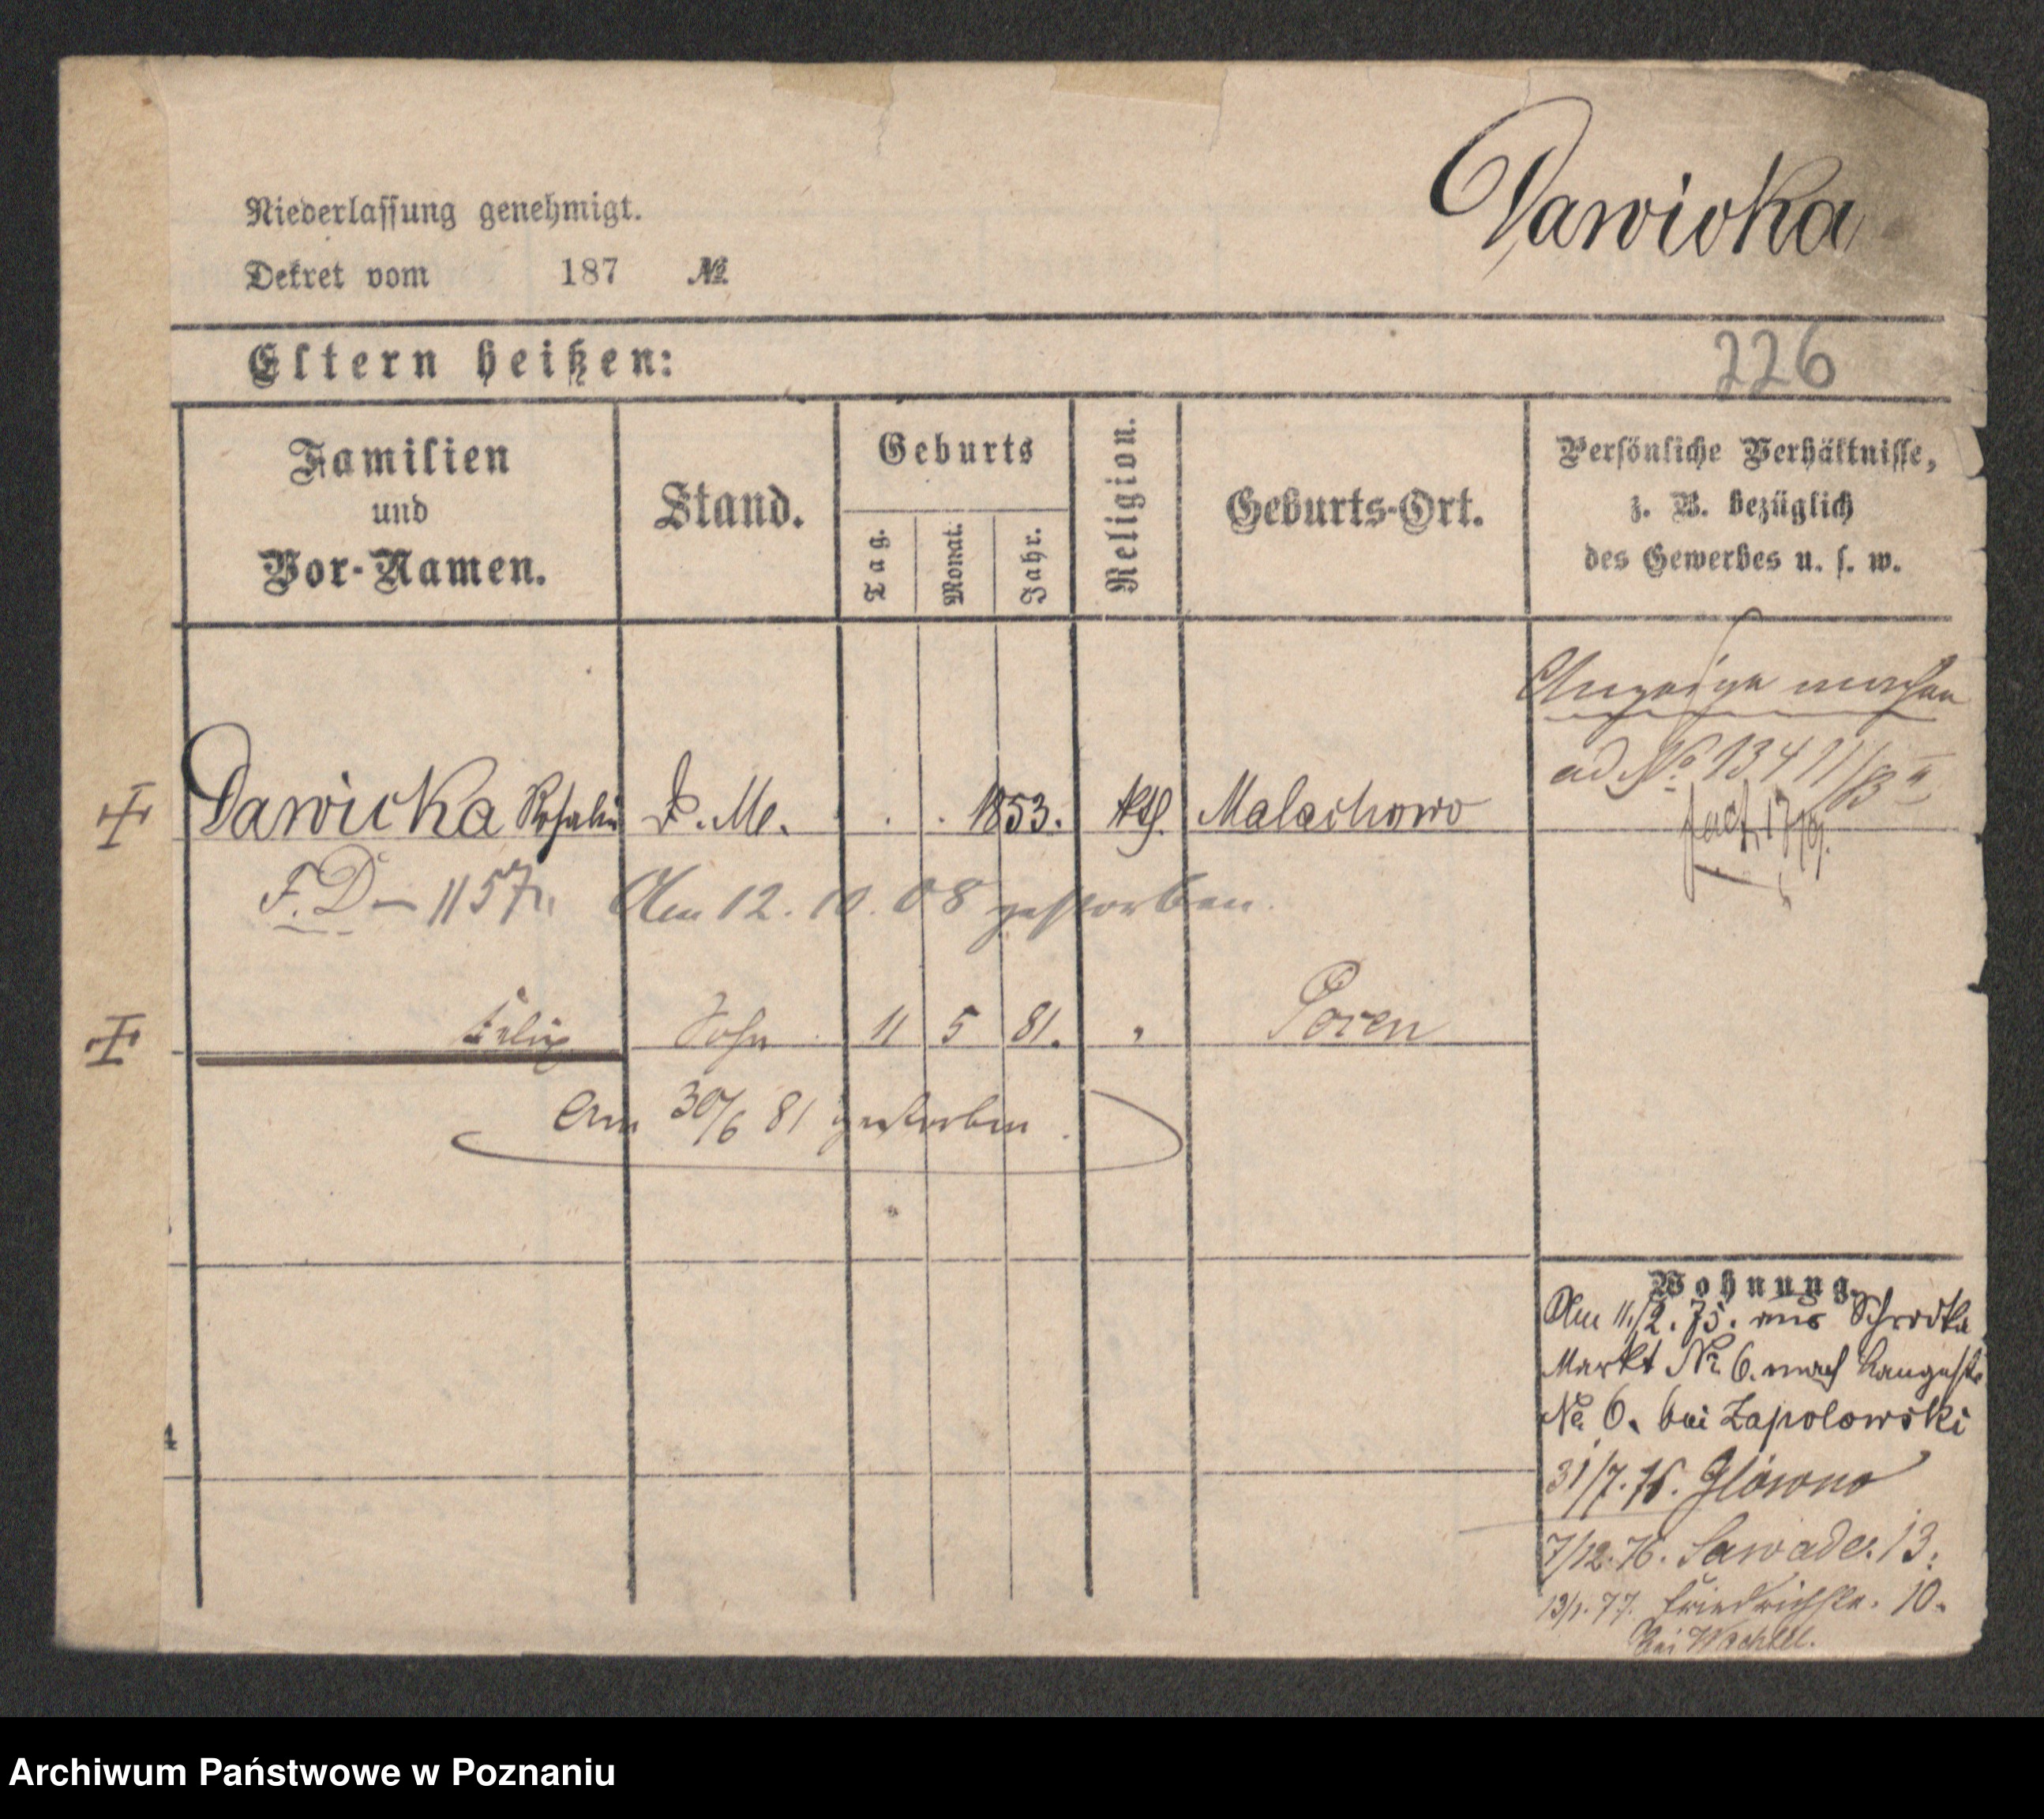 Dawicka
Niederlassung genehmigt.
Dekret vom 187 №
226
Eltern heißen:
Familien und Vor-Namen.
Stand.
Geburts
Tag.
Monat.
Jahr.
Religion.
Geburts-Ort.
Persönliche Verhältnisse,
z. B. bezüglich
des Gewerbes u. s. w.
Anzeige machen
ad No 13411/
Dawicka Rosalie D. M. . . 1853. kth. Malachowo
F. D – 1157 Am 12. 10. 08 gestorben.
Felix Sohn 11 5 81. " Posen
Am 30/6 81 gestorben.
4
Wohnung.
Am 11/2. 75. aus Schrodka
Markt Nr. 6. nach Langestr
No 6. bei Zapolowski
31/7. 75. Glówno
7/12. 76. Sawade. 13.
13/1. 77. Friedrichstr. 10.
bei Wachtel.
Archiwum Państwowe w Poznaniu